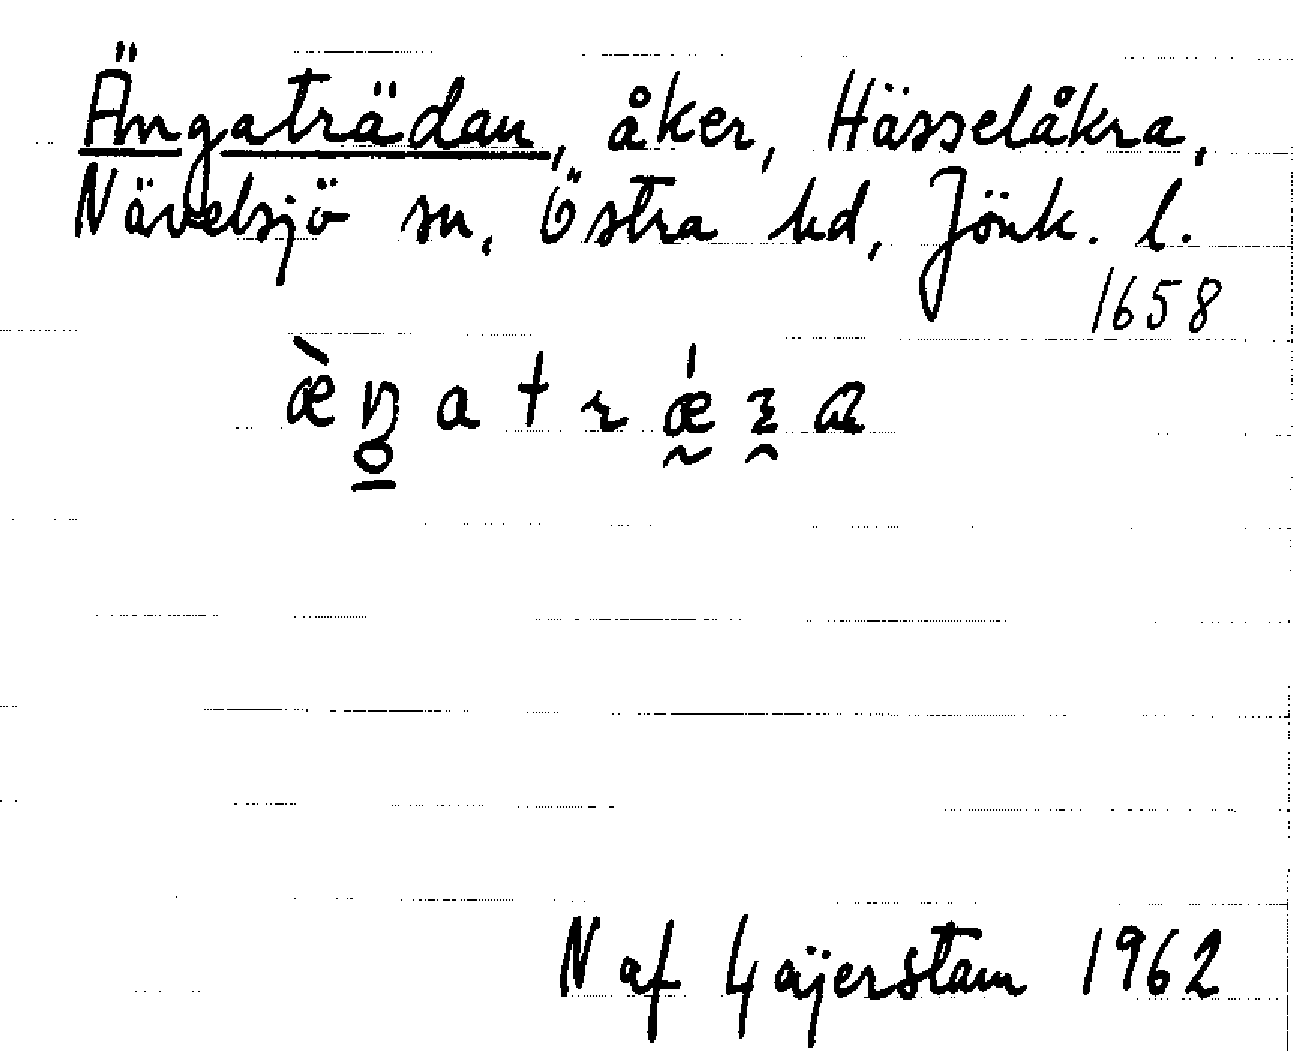 Ängaträdan, åker, Hässelåkra,
Nävelsjö sn, Östra hd, Jönk. l.
1658
N af Gäijerstam 1962